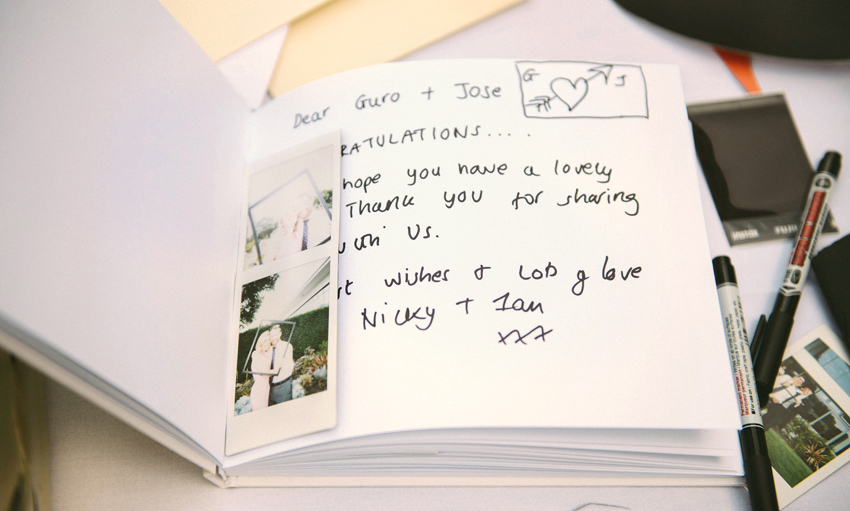 Dear Guro + Jose
G J
RATULATIONS....
hope you have a lovely
Thank you for sharing
with us.
st wishes & lots of love
Nicky + Ian
xxx
instax FUJI